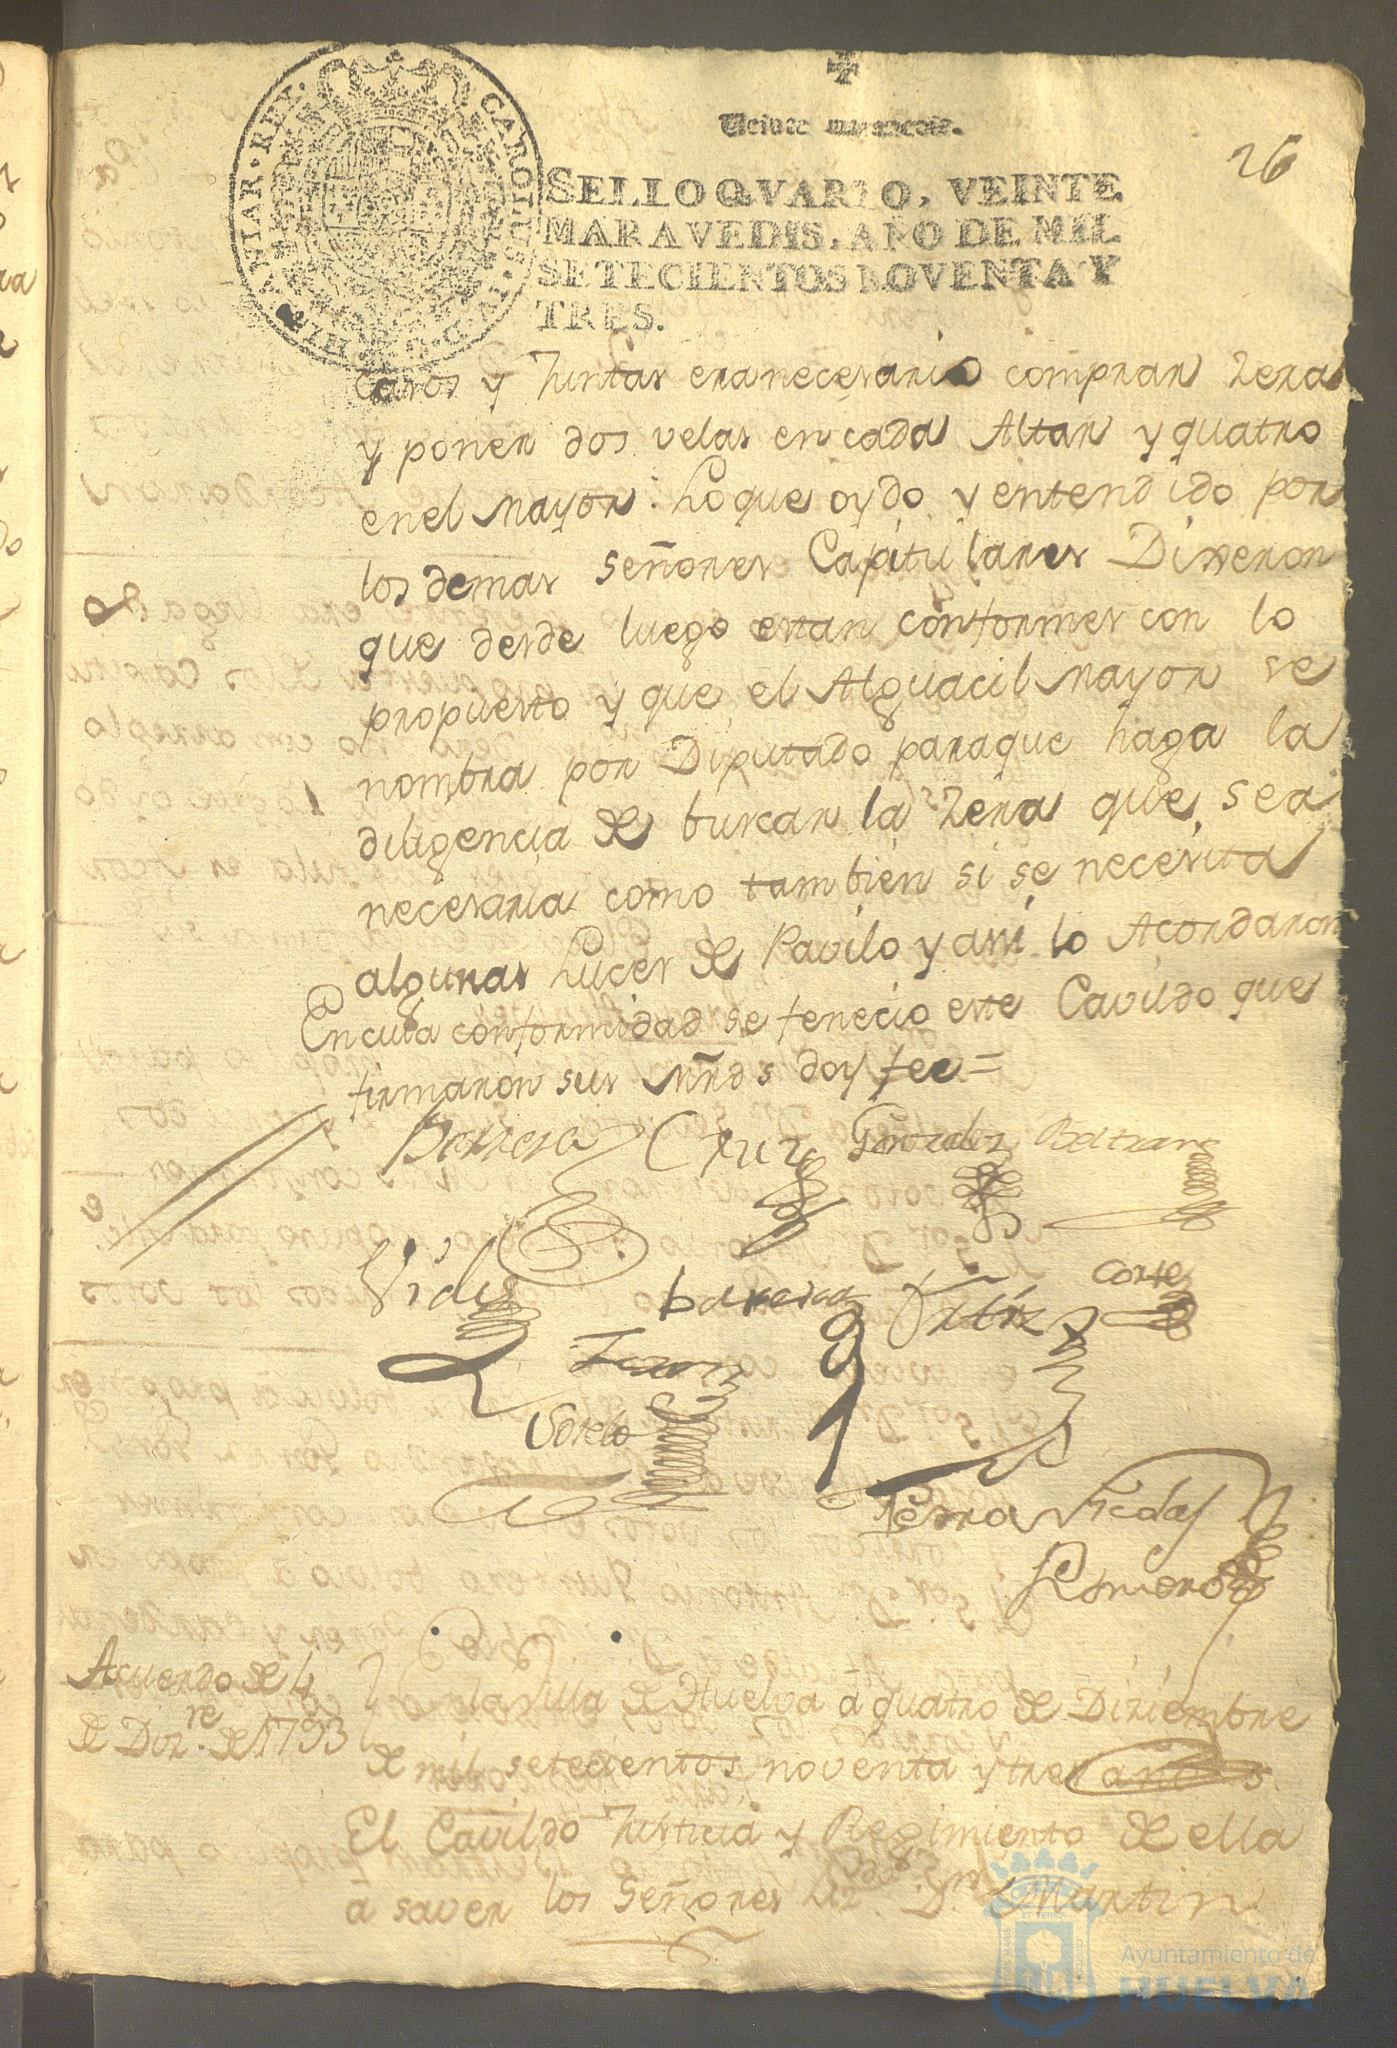 Veinte maravedis.
26
SELLO QVARTO, VEINTE
MARAVEDIS, AÑO DE MIL
SETECIENTOS NOVENTA Y
TRES.
CAROLUS IV D G HISPANIAR REX
caros y Juntas era necesario comprar zera
y poner dos velas en cada Altar y quatro
en el mayor: Lo que oydo y entendido por
los demas señores Capitulares Dixeron
que desde luego estan conformes con lo
propuesto y que el Alguacil mayor se
nombra por Diputado para que haga la
diligencia de buscar la zera que sea
necesaria como tambien si se necesita
algunas Luces de Pavilo y assi lo Acordaron
En cuia conformidad se fenecio este Cavildo que
firmaron sus mrds doy fee =
Barrera Cruz Gonzalez Beltran
Vides barreda Ortiz Cortes
Sotelo
Perra Vicdas
Romero
Acuerdo de 4
de Diz.re de 1793
En la villa de Huelva a quatro de Diziembre
de mil setecientos noventa y tres
El Cavildo Justicia y Regimiento de ella
a saver los Señores Lz. Dn. Martin
Ayuntamiento de
HUELVA